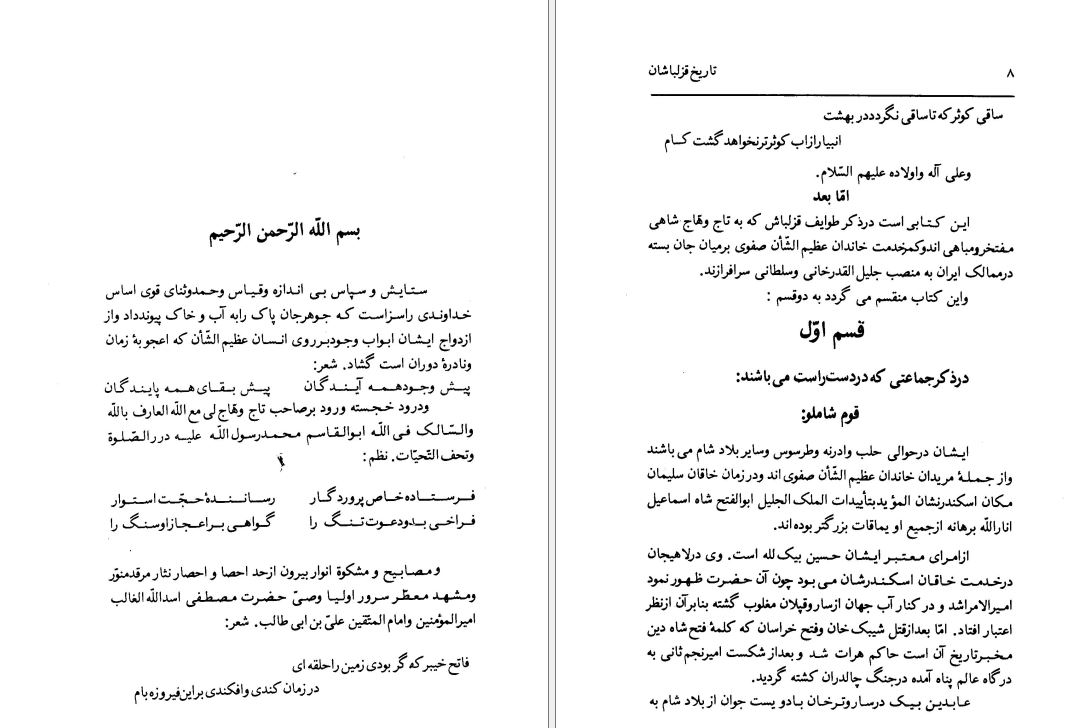 بسم اللّه الرّحمن الرّحیم
ستایش و سپاس بی اندازه وقیاس وحمدوثنای قوی اساس
خداوندی راسزاست که جوهرجان پاک رابه آب و خاک پیوندداد واز
ازدواج ایشان ابواب وجودبرروی انسان عظیم الشّأن که اعجوبۀ زمان
ونادرۀ دوران است گشاد. شعر:
پیش وجودهمه آیندگان پیش بقای همه پایندگان
ودرود خجسته ورود برصاحب تاج وهّاج لی مع اللّه العارف باللّه
والسّالک فی اللّه ابوالقاسم محمدرسول اللّه علیه دررالصّلوة
وتحف التّحیّات. نظم:
فرستاده خاص پروردگار رسانندۀ حجّت استوار
فراخی بدودعوت تنگ را گواهی براعجازاوسنگ را
ومصابیح و مشکوة انوار بیرون ازحد احصا و احصار نثار مرقدمنوّر
ومشهد معطّر سرور اولیا وصیّ حضرت مصطفی اسداللّه الغالب
امیرالمؤمنین وامام المتّقین علیّ بن ابی طالب. شعر:
فاتح خیبرکه گر بودی زمین راحلقه ای
درزمان کندی وافکندی براین فیروزه بام
۸ تاریخ قزلباشان
ساقی کوثرکه تاساقی نگردددر بهشت
انبیارازاب کوثرترنخواهدگشت کام
وعلی آله واولاده علیهم السّلام.
امّا بعد
این کتابی است درذکر طوایف قزلباش که به تاج وهّاج شاهی
مفتخرومباهی اندوکمرخدمت خاندان عظیم الشّأن صفوی برمیان جان بسته
درممالک ایران به منصب جلیل القدرخانی وسلطانی سرافرازند.
واین کتاب منقسم می گردد به دوقسم :
قسم اوّل
درذکرجماعتی که دردست راست می باشند:
قوم شاملو:
ایشان درحوالی حلب وادرنه وطرسوس وسایر بلاد شام می باشند
واز جملۀ مریدان خاندان عظیم الشّأن صفوی اند ودرزمان خاقان سلیمان
مکان اسکندرنشان المؤیدبتأییدات الملک الجلیل ابوالفتح شاه اسماعیل
اناراللّه برهانه ازجمیع او یماقات بزرگتر بوده اند.
ازامرای معتبر ایشان حسین بیک لله است. وی درلاهیجان
درخدمت خاقان اسکندرشان می بود چون آن حضرت ظهور نمود
امیرالامراشد و درکنار آب جهان ازساروقپلان مغلوب گشته بنابرآن ازنظر
اعتبار افتاد. امّا بعدازقتل شیبک خان وفتح خراسان که کلمۀ فتح شاه دین
مخبرتاریخ آن است حاکم هرات شد و بعداز شکست امیرنجم ثانی به
درگاه عالم پناه آمده درجنگ چالدران کشته گردید.
عابدین بیک درساروترخان بادو یست جوان از بلاد شام به